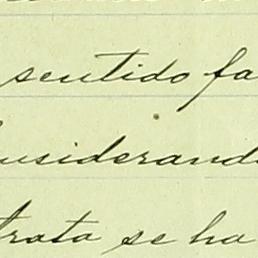 sentido fa
nsiderand
trata se ha